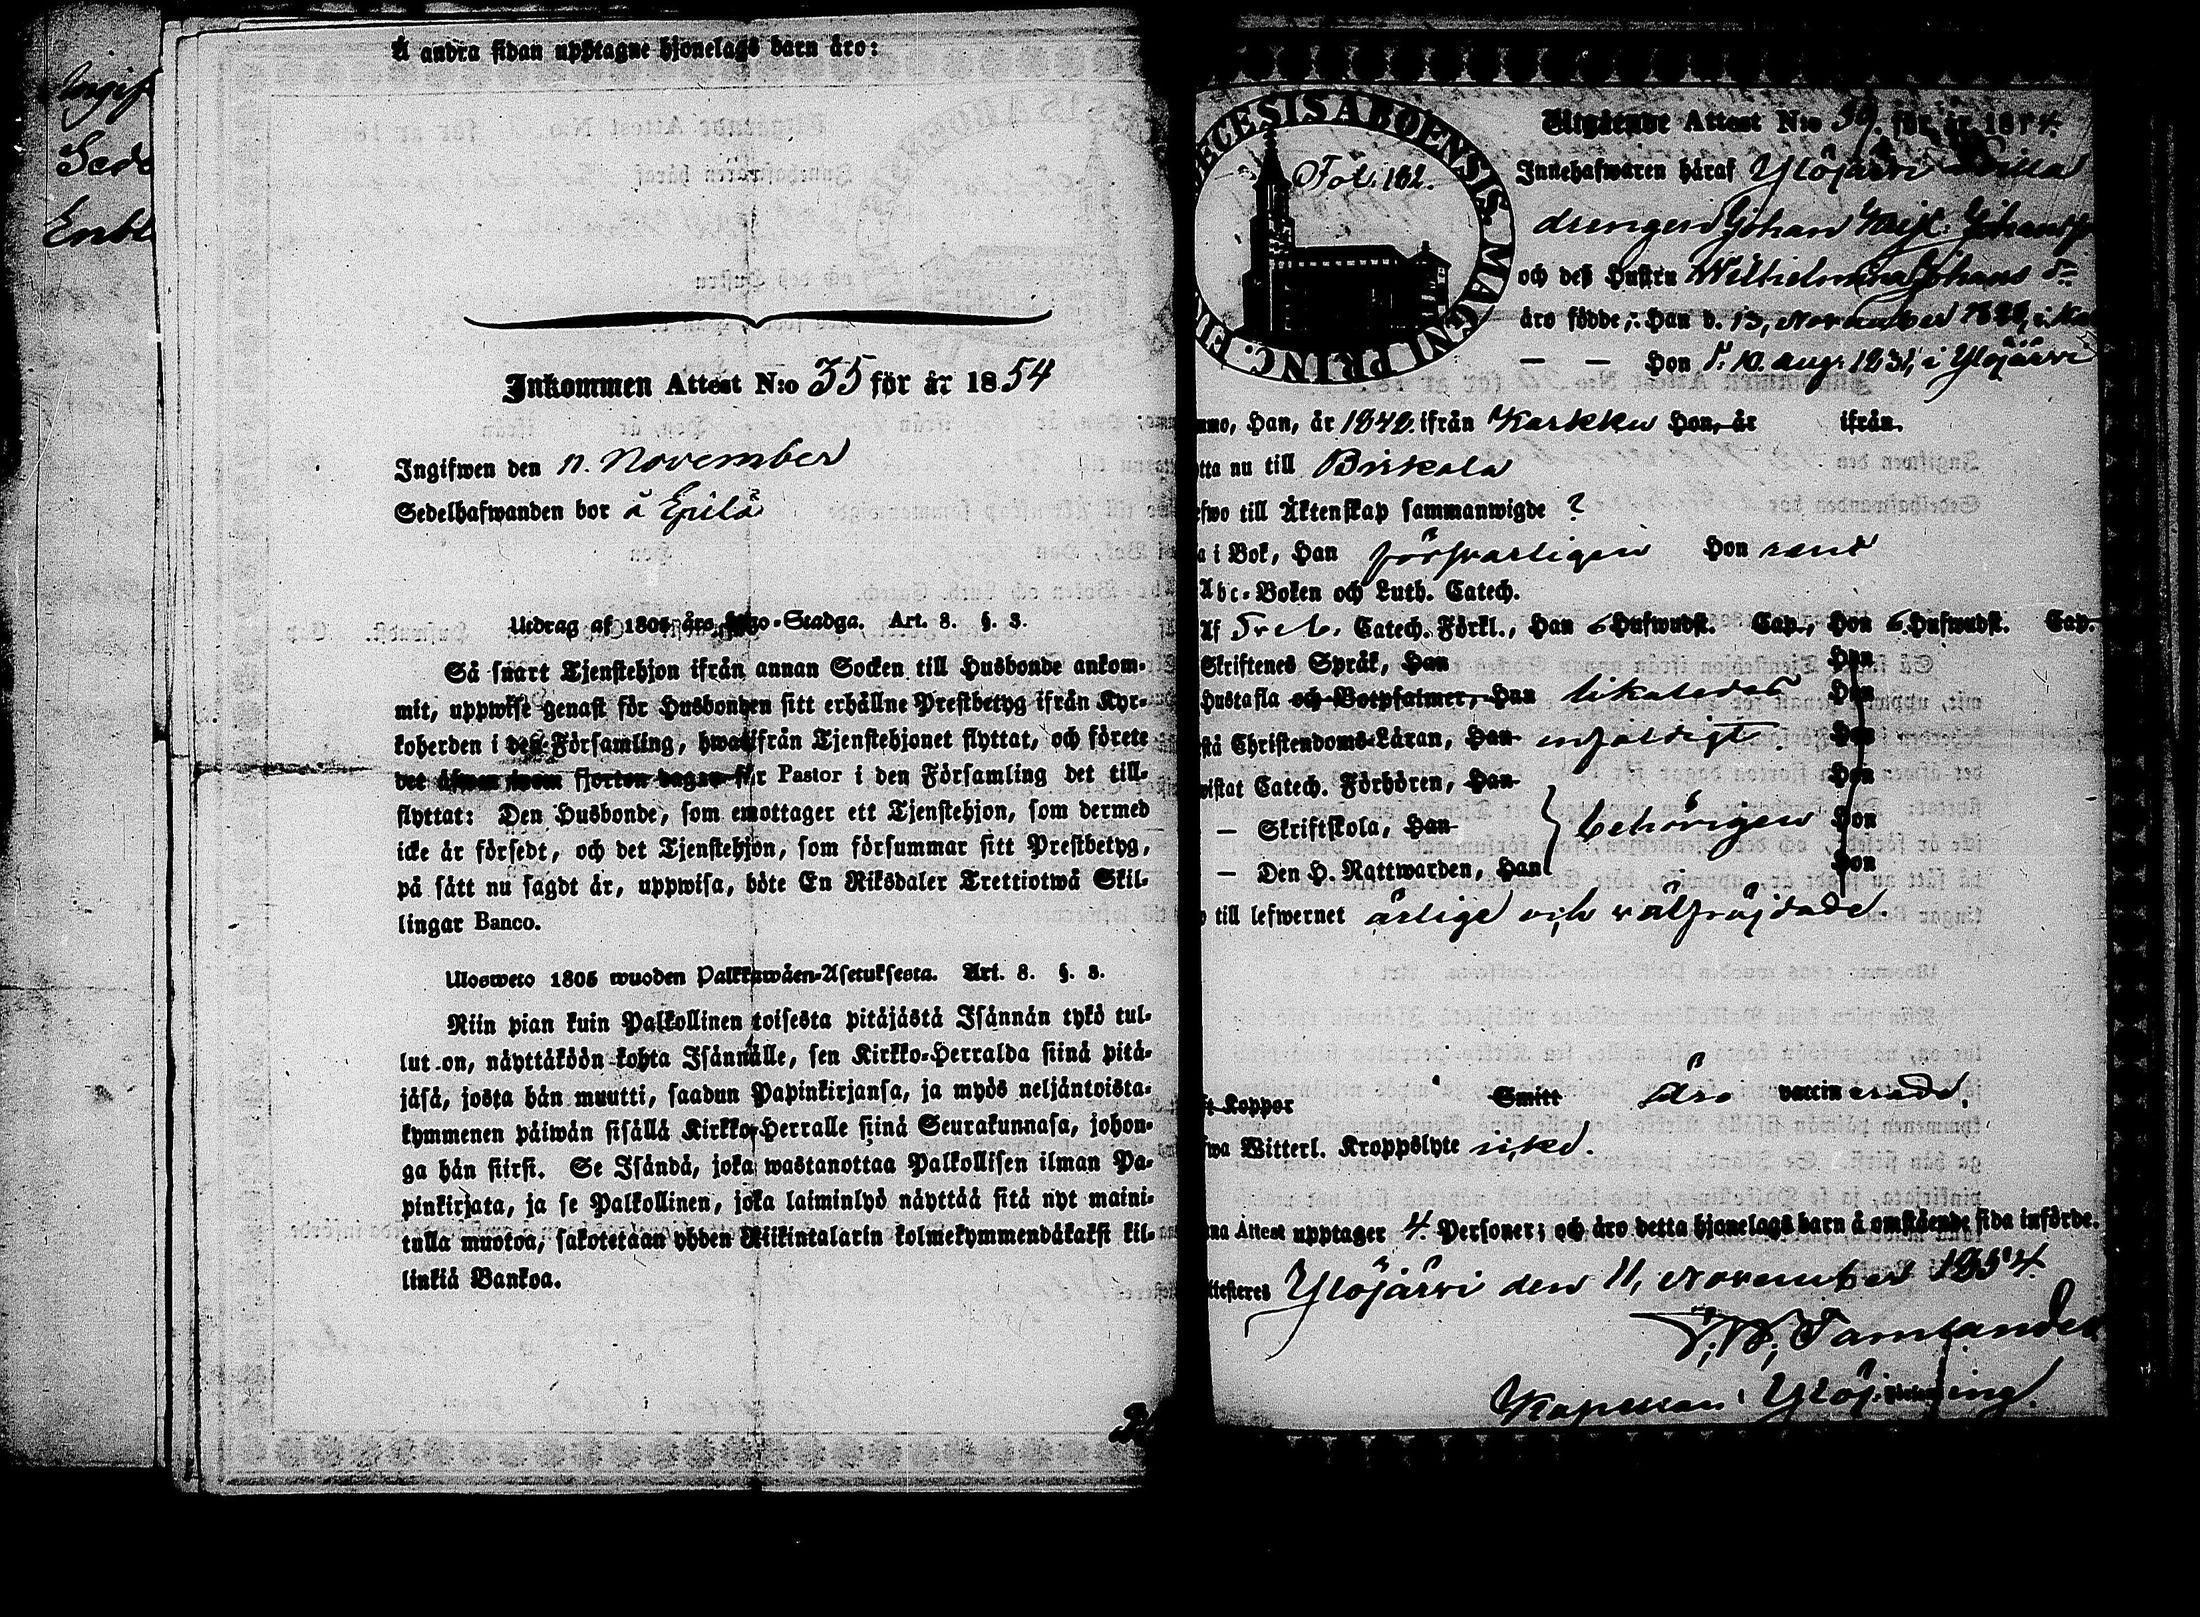 Ingif
Sede
Enbl
Å andra sidan upptagne hjonelags barn äro:
Inkommen Attest N:o 35 för år 1854
Ingifwen den 11. November
Sedelhafwanden bor å Epilä
Utdrag af 1805 års Lego-Stadga. Art. 8. §. 3.
Så snart Tjenstehjon ifrån annan Socken till Husbonde ankom-
mit, uppwise genast för Husbonden sitt erhållne Prestbetyg ifrån Kyr-
koherden i den Församling, hwarifrån Tjenstehjonet flyttat, och förete
det äfwen inom fjorton dagar för Pastor i den Församling det till-
flyttat: Den Husbonde, som emottager ett Tjenstehjon, som dermed
icke är försedt, och det Tjenstehjon, som försummar sitt Prestbetyg,
på sätt nu sagdt är, uppwisa, böte En Riksdaler Trettiotwå Skil-
lingar Banco.
Ulosweto 1805 wuoden Palkkawäen-Asetuksesta. Art. 8. §. 3.
Niin pian kuin Palkollinen toisesta pitäjästä Isännän tykö tul-
lut on, näyttäköön kohta Isännälle, sen Kirkko-Herralda siinä pitä-
jäsä, josta hän muutti, saadun Papinkirjansa, ja myös neljäntoista-
kymmenen päiwän sisällä Kirkko-Herralle siinä Seurakunnasa, johon-
ga hän siirsi. Se Isändä, joka wastanottaa Palkollisen ilman Pa-
pinkirjata, ja se Palkollinen, joka laiminlyö näyttää sitä nyt maini-
tulla muotoa, sakotetaan yhden Riikintalarin kolmekymmendäkaksi kil-
linkiä Bankoa.
ECESIS ABOENSIS. MAGNI PRINC. FIN
Fol. 162.
Utgående Attest N:o 39. för år 1854.
Innehafwaren häraf Ylöjärvi
drengen Johan
och deß Hustru Wilhelmina Johans dr
äro födde, Han d. 13, November
— — Hon d. 10. Aug. 1831, i Ylöjärvi
mno, Han, år 1840. ifrån Karkku Hon, år ifrån.
tta nu till Birkala
efwo till Äktenskap sammanwigde ?
a i Bok, Han försvarligen Hon rent
Abc-Boken och Luth. Catech.
Af Catech. Förkl., Han 6 Hufwudst. Cap., Hon 6. Hufwudst. Cap.
Skriftenes Språk, Han Hon
Hustafla och Botpsalmer, Han likaledes Hon
stå Christendoms-Läran, Han enfaldigt. Hon
wistat Catech. Förhören, Han Hon
— Skriftskola, Han behörigen Hon
— Den H. Nattwarden, Han Hon
till lefwernet ärlige och välfräjdade.
ft Koppor Smitt äro vaccinerade,
fwa Witterl. Kroppslyte icke.
na Attest upptager 4. Personer; och äro detta hjonelags barn å omstående sida införde.
ttesteres Ylöjärvi den 11, November 1854.
Tamlander
Kapellan i Ylöj.